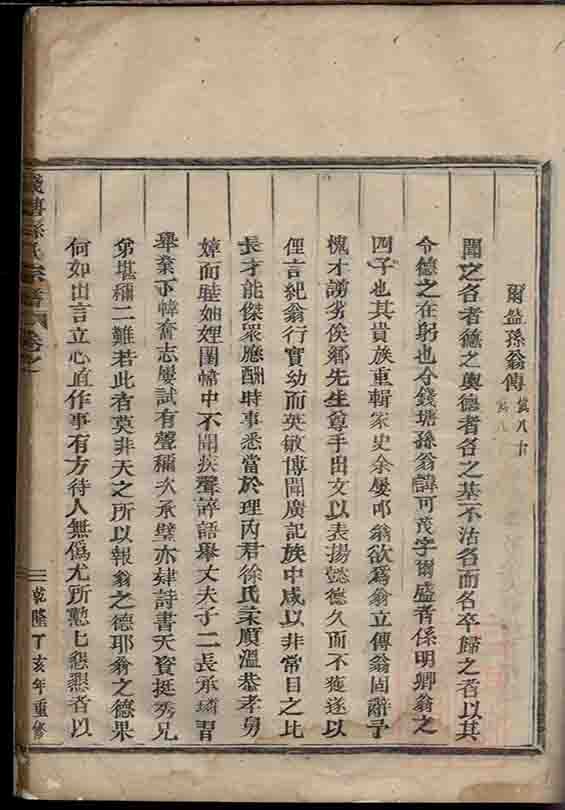 爾盛孫翁傳
聞之名者德之輿德者名之基不沽名而名卒歸之者以其
令德之在躬也今錢塘孫翁諱可茂字爾盛者係明卿翁之
四子也其貴族重輯家史余屢邨翁欲為翁立傳翁固辭予
槐才謭劣俟鄉先生尊手出文以表揚懿德久而不獲遂以
俚言紀翁行實幼而英敏博聞廣記族中咸以非常目之比
長才能傑眾應酬時事悉當於理內君徐氏柔順溫恭孝舅
嫜而睦妯娌閨幃中不聞疾聲誶語舉丈夫子二長承璘習
舉業下幃奮志屢試有聲稱次承璧亦肄詩書天資挺秀兄
弟堪稱二難若此者莫非天之所以報翁之德耶翁之德果
何如出言立心直作事有方待人無偽尤所懃懃懇懇者以
錢塘孫氏宗譜 卷之
乾隆丁亥年重修